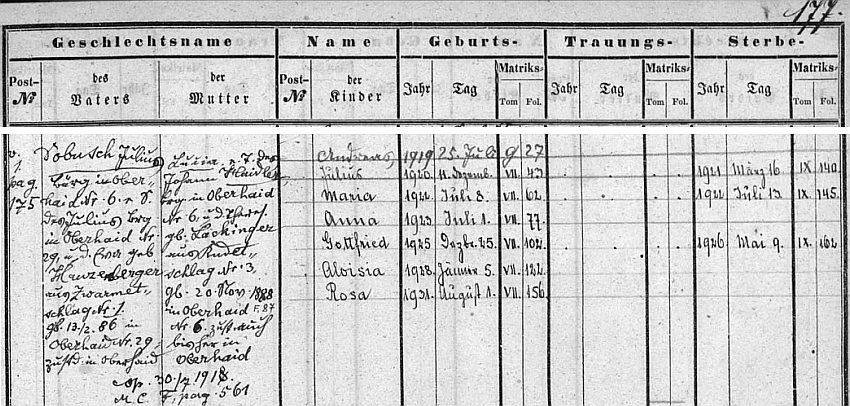 177.
Geschlechtsname Name Geburts- Trauungs- Sterbe-
Post- № des Vaters der Mutter Post- № der Kinder Jahr Tag Matriks- Tom Fol. Jahr Tag Matriks- Tom Fol. Jahr Tag Matriks- Tom Fol.
v. Dobusch Julius Luzia, e. T. des Andreas 1919 25. Juli 9 27
1. Bürg in Ober- Johann Haidler Julius 1920 11. Dezemb. VII. 43 1921 März 16. IX 140.
pag. haid Nr. 6. e. S. berg in Oberhaid Maria 1922 Juli 8. VII. 62. 1922 Juli 13. IX. 145.
175 des Julius, Berg Nr 6, u. d. Anna 1923 Juli 1. VII. 77.
in Oberhaid Nr. gb. Lackinger Gottfried 1925 Dezbr. 25. VII. 102. 1926 Mai 9. IX. 162
29, u. d. Eva geb. aus Rudet- Aloisia 1928. Jänner 5. VII. 122.
Hanzenberger schlag Nr. 3, Rosa 1931. August 1. VII. 156.
aus Zwarmet- gb. 20. Nov. 1888
schlag Nr. 1. in Oberhaid F. 87
gb. 13/2. 86 in Nr 6. zust. auch
Oberhaid Nr. 29, bisher in
zustd. in Oberhaid Oberhaid
Cop. 30/7 1918.
M. C. F, pag. 561